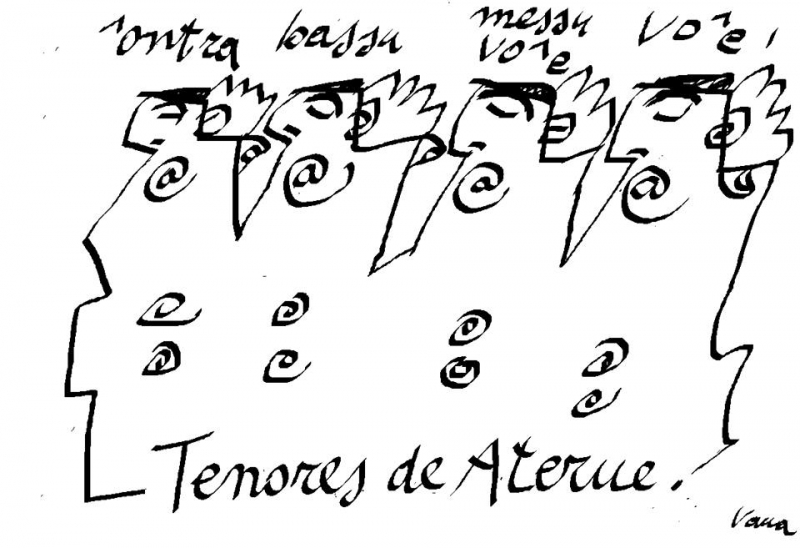 contra
bassu
messu
voce
voce
Tenores de Aterue.